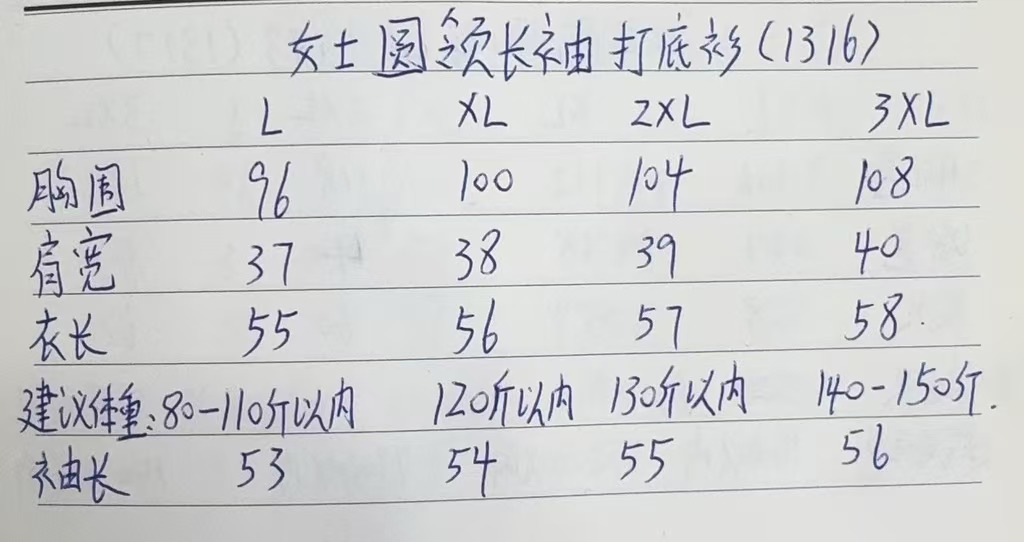 女士圆领长袖打底衫(1316)
L XL 2XL 3XL
胸围 96 100 104 108
肩宽 37 38 39 40
衣长 55 56 57 58.
建议体重:80-110斤以内 120斤以内 130斤以内 140-150斤.
袖长 53 54 55 56